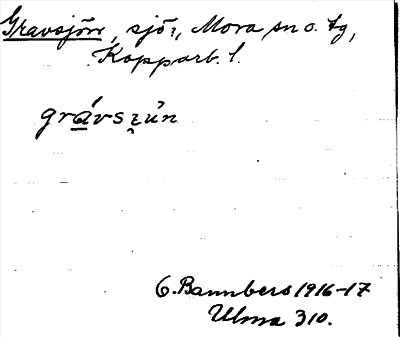 Gravsjön, sjö, Mora sn o. tg,
Kopparb. l.
grávsi̯ún
O. Bannbers 1916-17
Ulma 310.